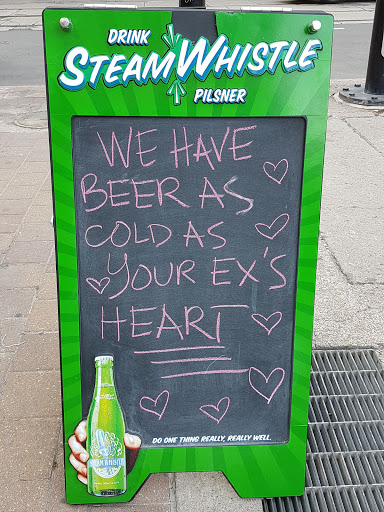 DRINK
STEAMWHISTLE
PILSNER
WE HAVE
BEER AS
COLD AS
YOUR EX'S
HEART
DO ONE THING REALLY, REALLY WELL.